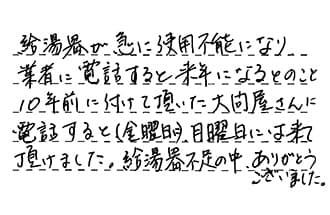 給湯器が急に使用不能になり
業者に電話すると来年になるとのこと
10年前に付けて頂いた大問屋さんに
電話すると(金曜日)、日曜日には来て
頂けました。給湯器不足の中、ありがとう
ございました。